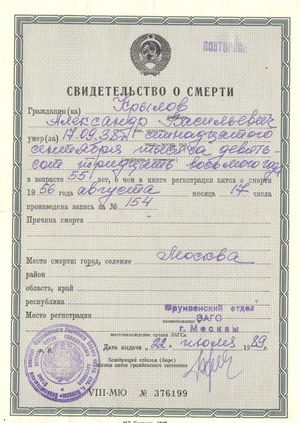 ПОВТОРНОЕ
СВИДЕТЕЛЬСТВО О СМЕРТИ
Гражданин(ка) Крылов
Александр Васильевич
умер(ла) 17.09.38г. семнадцатого
сентября тысяча девять-
сот тридцать восьмого года
в возрасте 55 лет, о чем в книге регистрации актов о смерти
19 56 года августа месяца 17 числа
произведена запись за № 154
Причина смерти
Место смерти: город, селение Москва
район
область, край
республика
Место регистрации Фрунзенский отдел
наименование
ЗАГС
г. Москвы
местонахождение органа ЗАГСа
Дата выдачи 22 июля 19 89 г.
Заведующий отделом (бюро)
записи актов гражданского состояния
VIII-МЮ № 376199